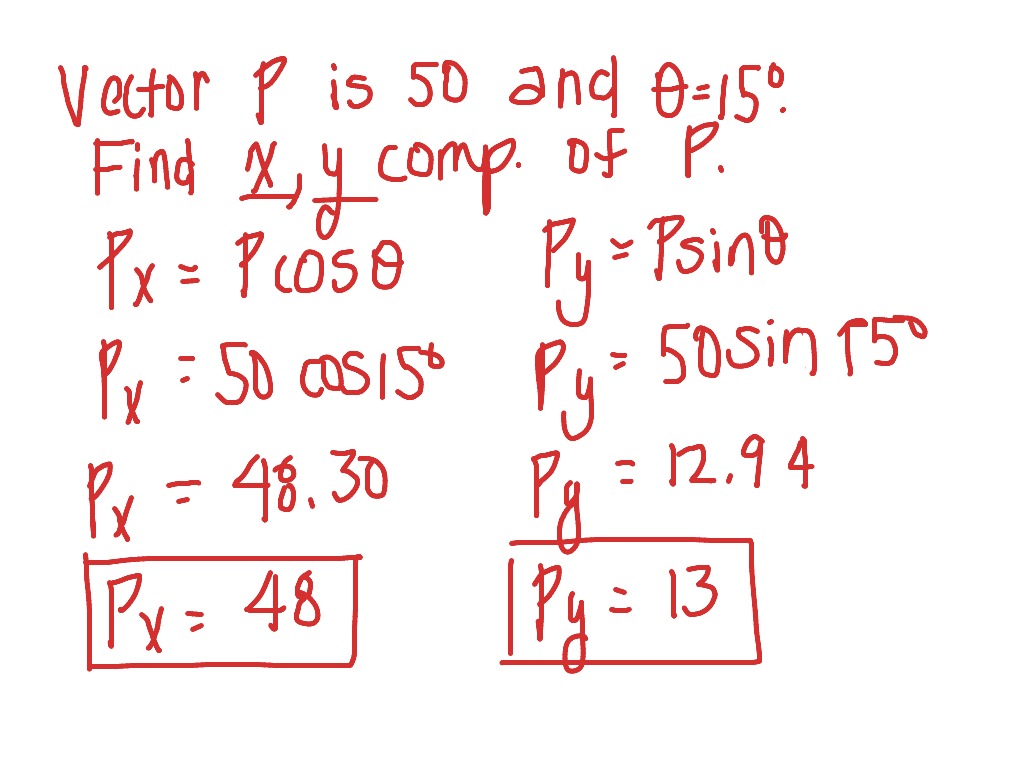 Vector P is 50 and θ=15°.
Find x, y comp. of P.
Px = Pcosθ
Py = Psinθ
Px = 50 cos15°
Py = 50sin15°
Px = 48.30
Py = 12.94
Px = 48
Py = 13